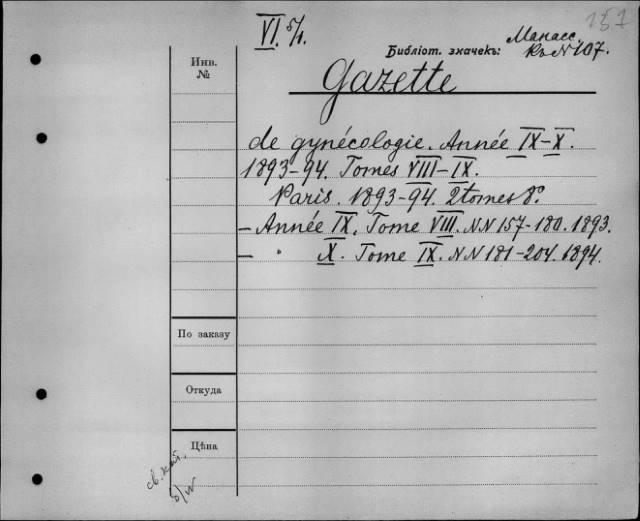 157
VI. 5/1.
Библіот. значекъ: Манасс.
Къ N 107.
Инв.
№
Gazette
de gynécologie. Année IX-X.
1893-94. Tomes VIII-IX.
Paris. 1893-94. 2 tomes 8º.
- Année IX. Tome VIII. NN 157-180. 1893.
- " X. Tome IX. NN 181-204. 1894.
По заказу
Откуда
Цѣна
св. кат.